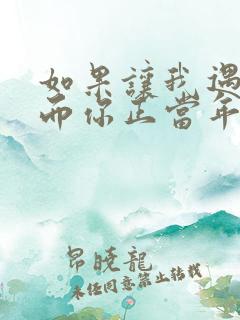 如果讓我遇
而你正當年
昂曉龍
未任同意禁止轉載